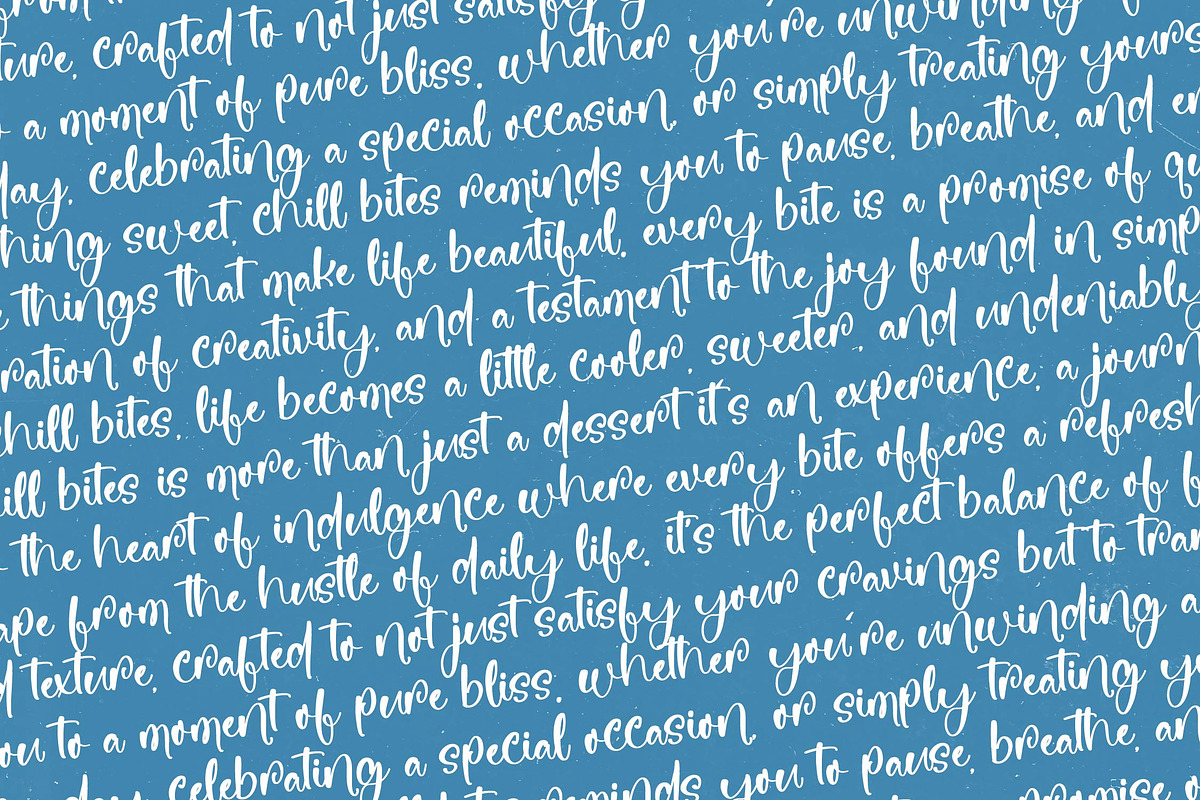 from
ture, crafted to not just satisfy
a moment of pure bliss. whether you're unwinding
day, celebrating a special occasion, or simply treating yours
thing sweet, chill bites reminds you to pause, breathe, and en
e things that make life beautiful. every bite is a promise of qu
ration of creativity, and a testament to the joy found in simp
chill bites, life becomes a little cooler, sweeter, and undeniably
ill bites is more than just a dessert it's an experience, a journ
the heart of indulgence where every bite offers a refresh
ape from the hustle of daily life. it's the perfect balance of b
d texture, crafted to not just satisfy your cravings but to tran
ou to a moment of pure bliss. whether you're unwinding a
day, celebrating a special occasion, or simply treating y
reminds you to pause, breathe, an
promise o